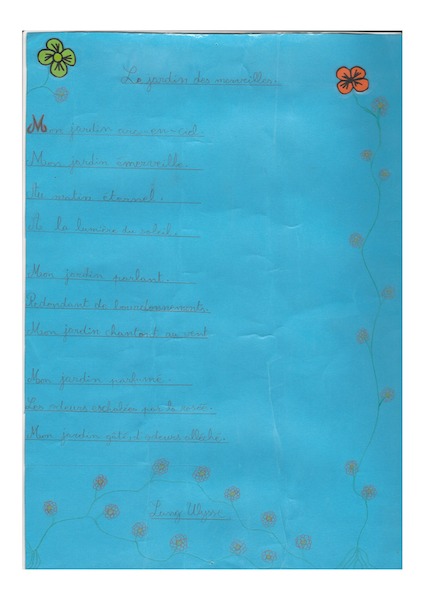 Le jardin des merveilles.
Mon jardin arc-en-ciel.
Mon jardin émerveille.
Au matin éternel.
À la lumière du soleil.
Mon jardin parlant.
Rédondant de bourdonnements
Mon jardin chantant au vent
Mon jardin parfumé.
Les odeurs exhalées par la rosée.
Mon jardin odeurs alléché.
Ulysse.